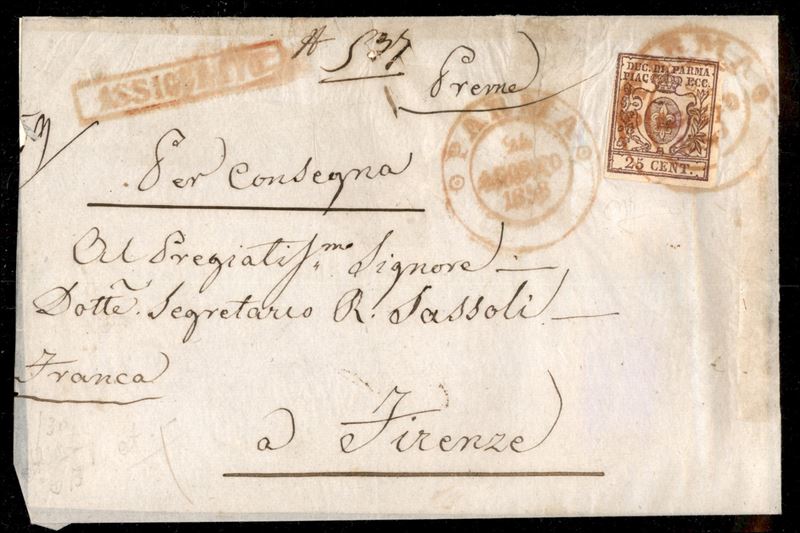 537
Preme
DUC. DI PARMA
PIAC ECC.
25 CENT.
PARMA
24
AGOSTO
Per Consegna
Al Pregiatissmo Signore
Dotte. Segretario R. Sassoli
Franca
a Firenze